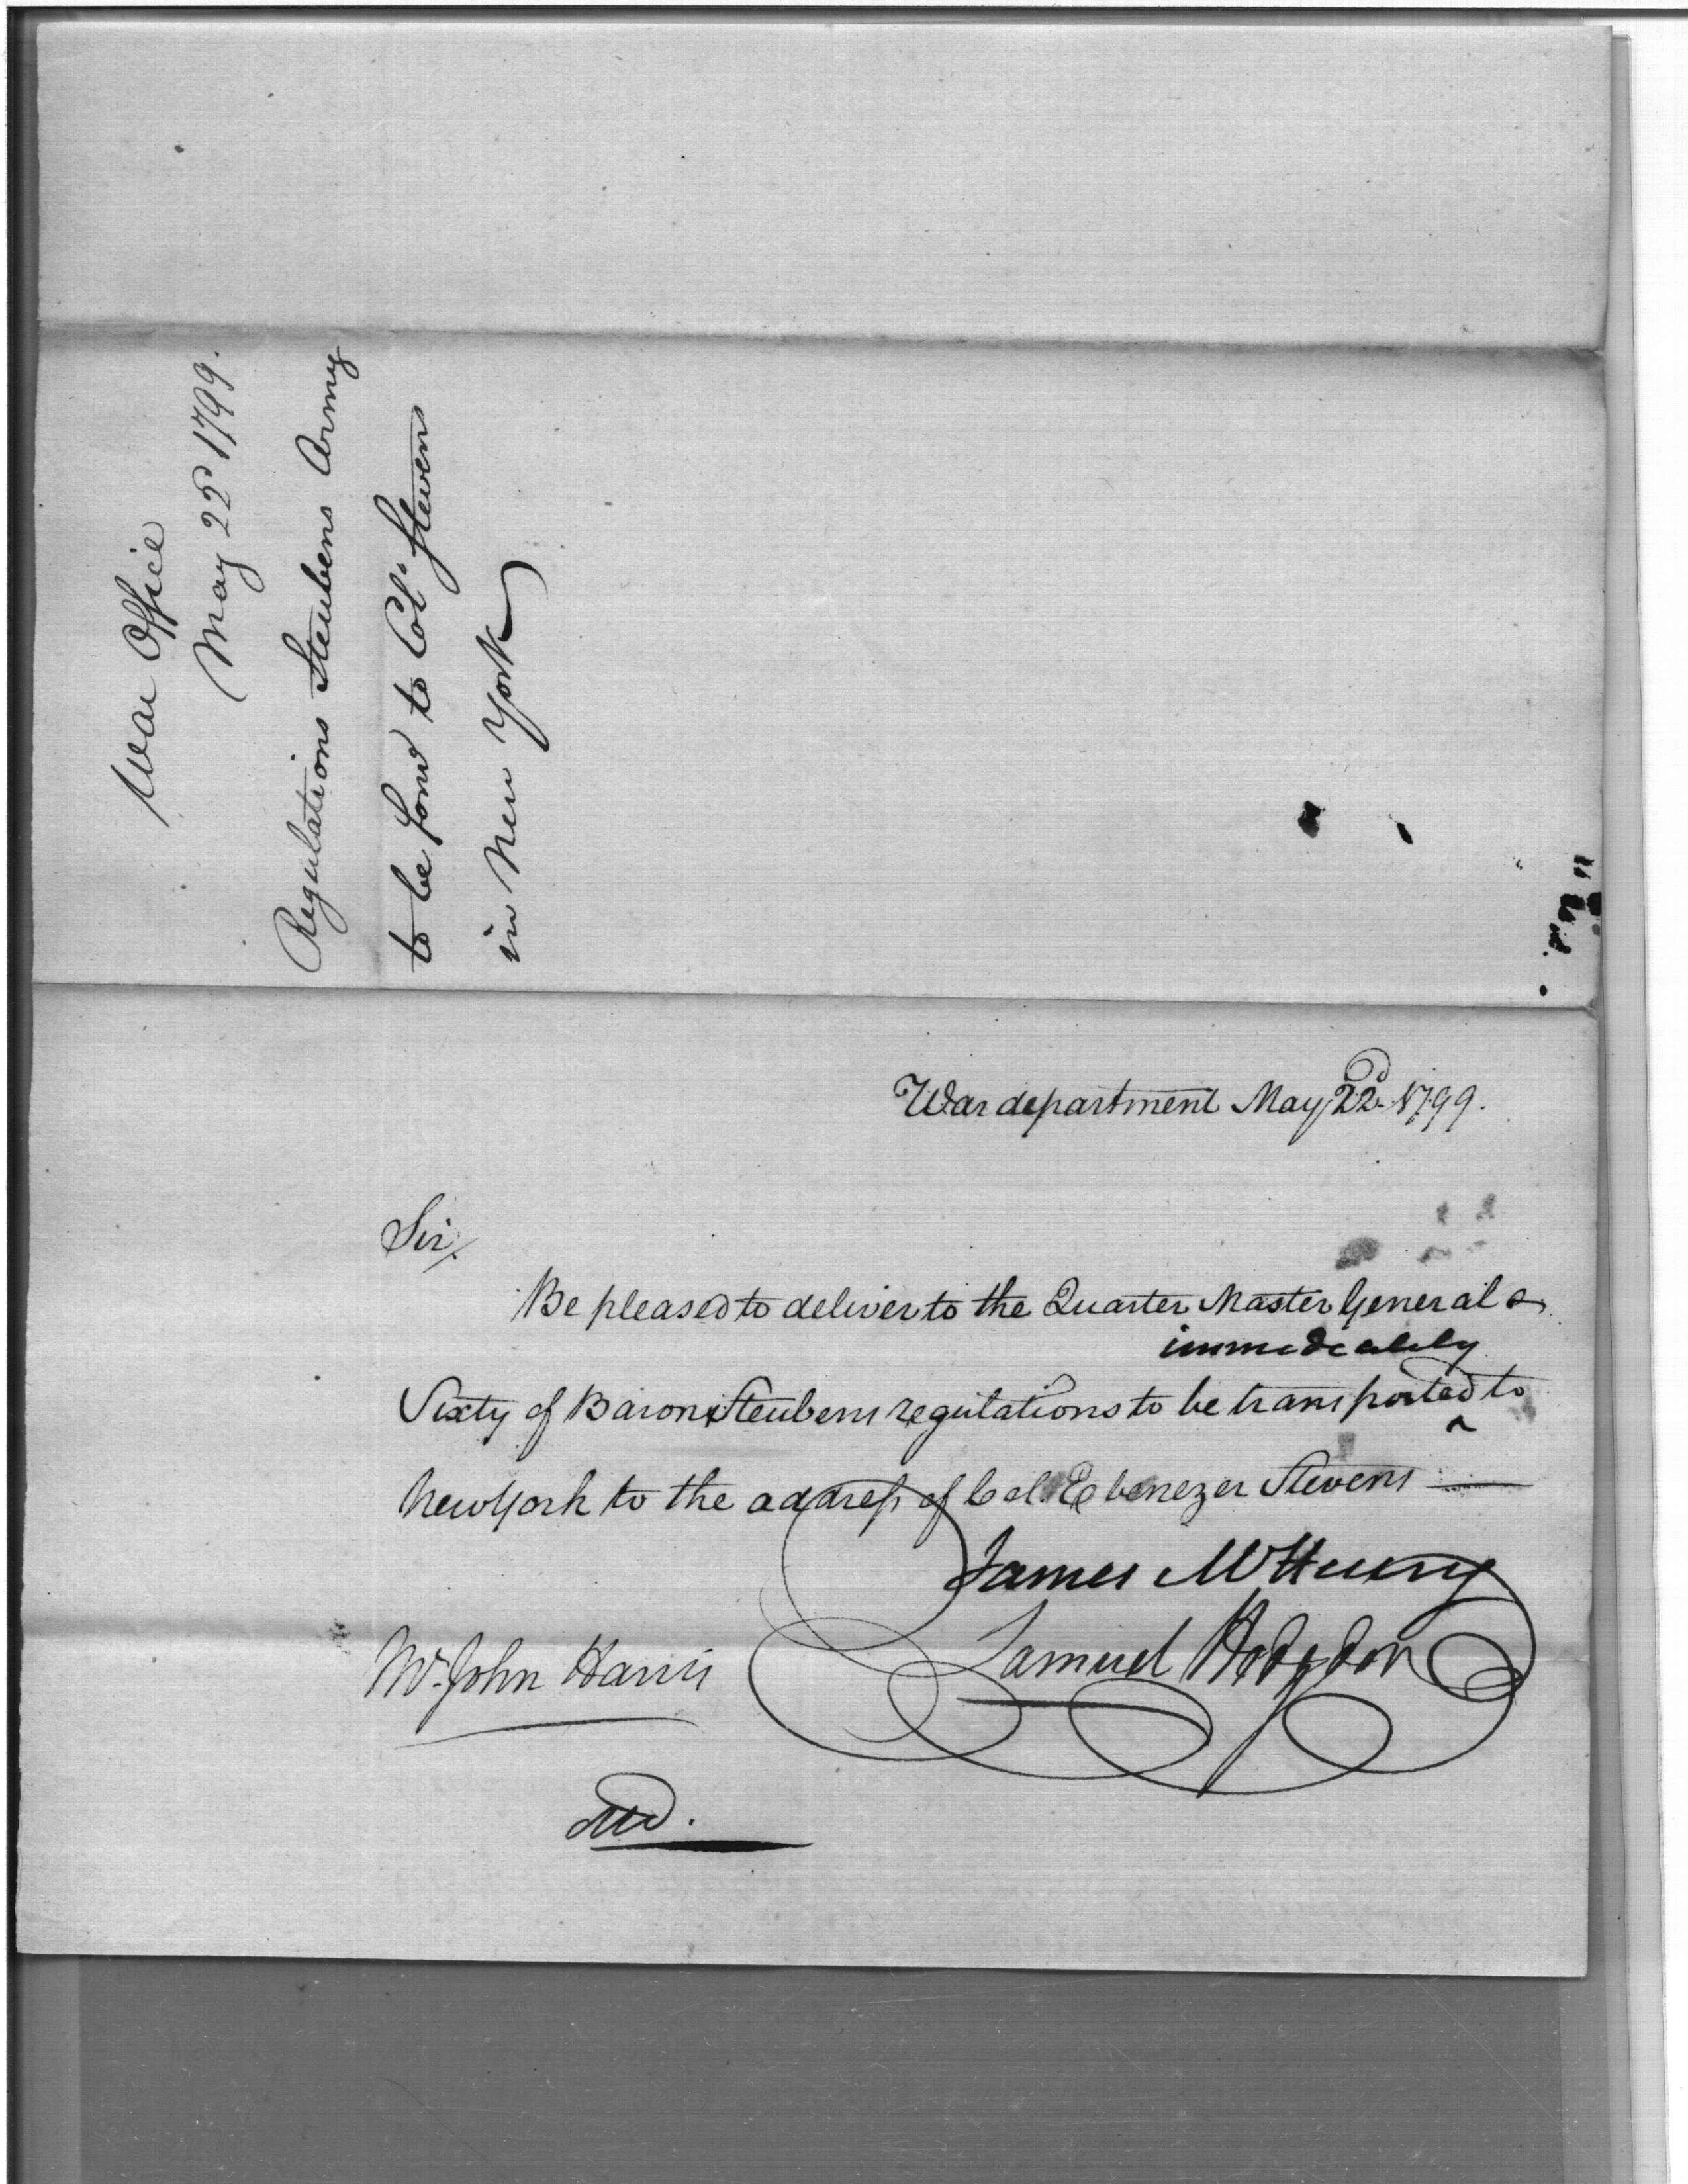 War Office
May 22d 1799.
Regulations Steubens Army
to be forwd to Colo Stevens
in New York
War department May 22d 1799.
Sir,
Be pleased to deliver to the Quarter Master General
immediately
Sixty of Baron Steubens regulations to be transported ^ to
New York to the address of Col. Ebenezer Stevens —
James McHenry
Samuel Hodgdon
Mr. John Harris